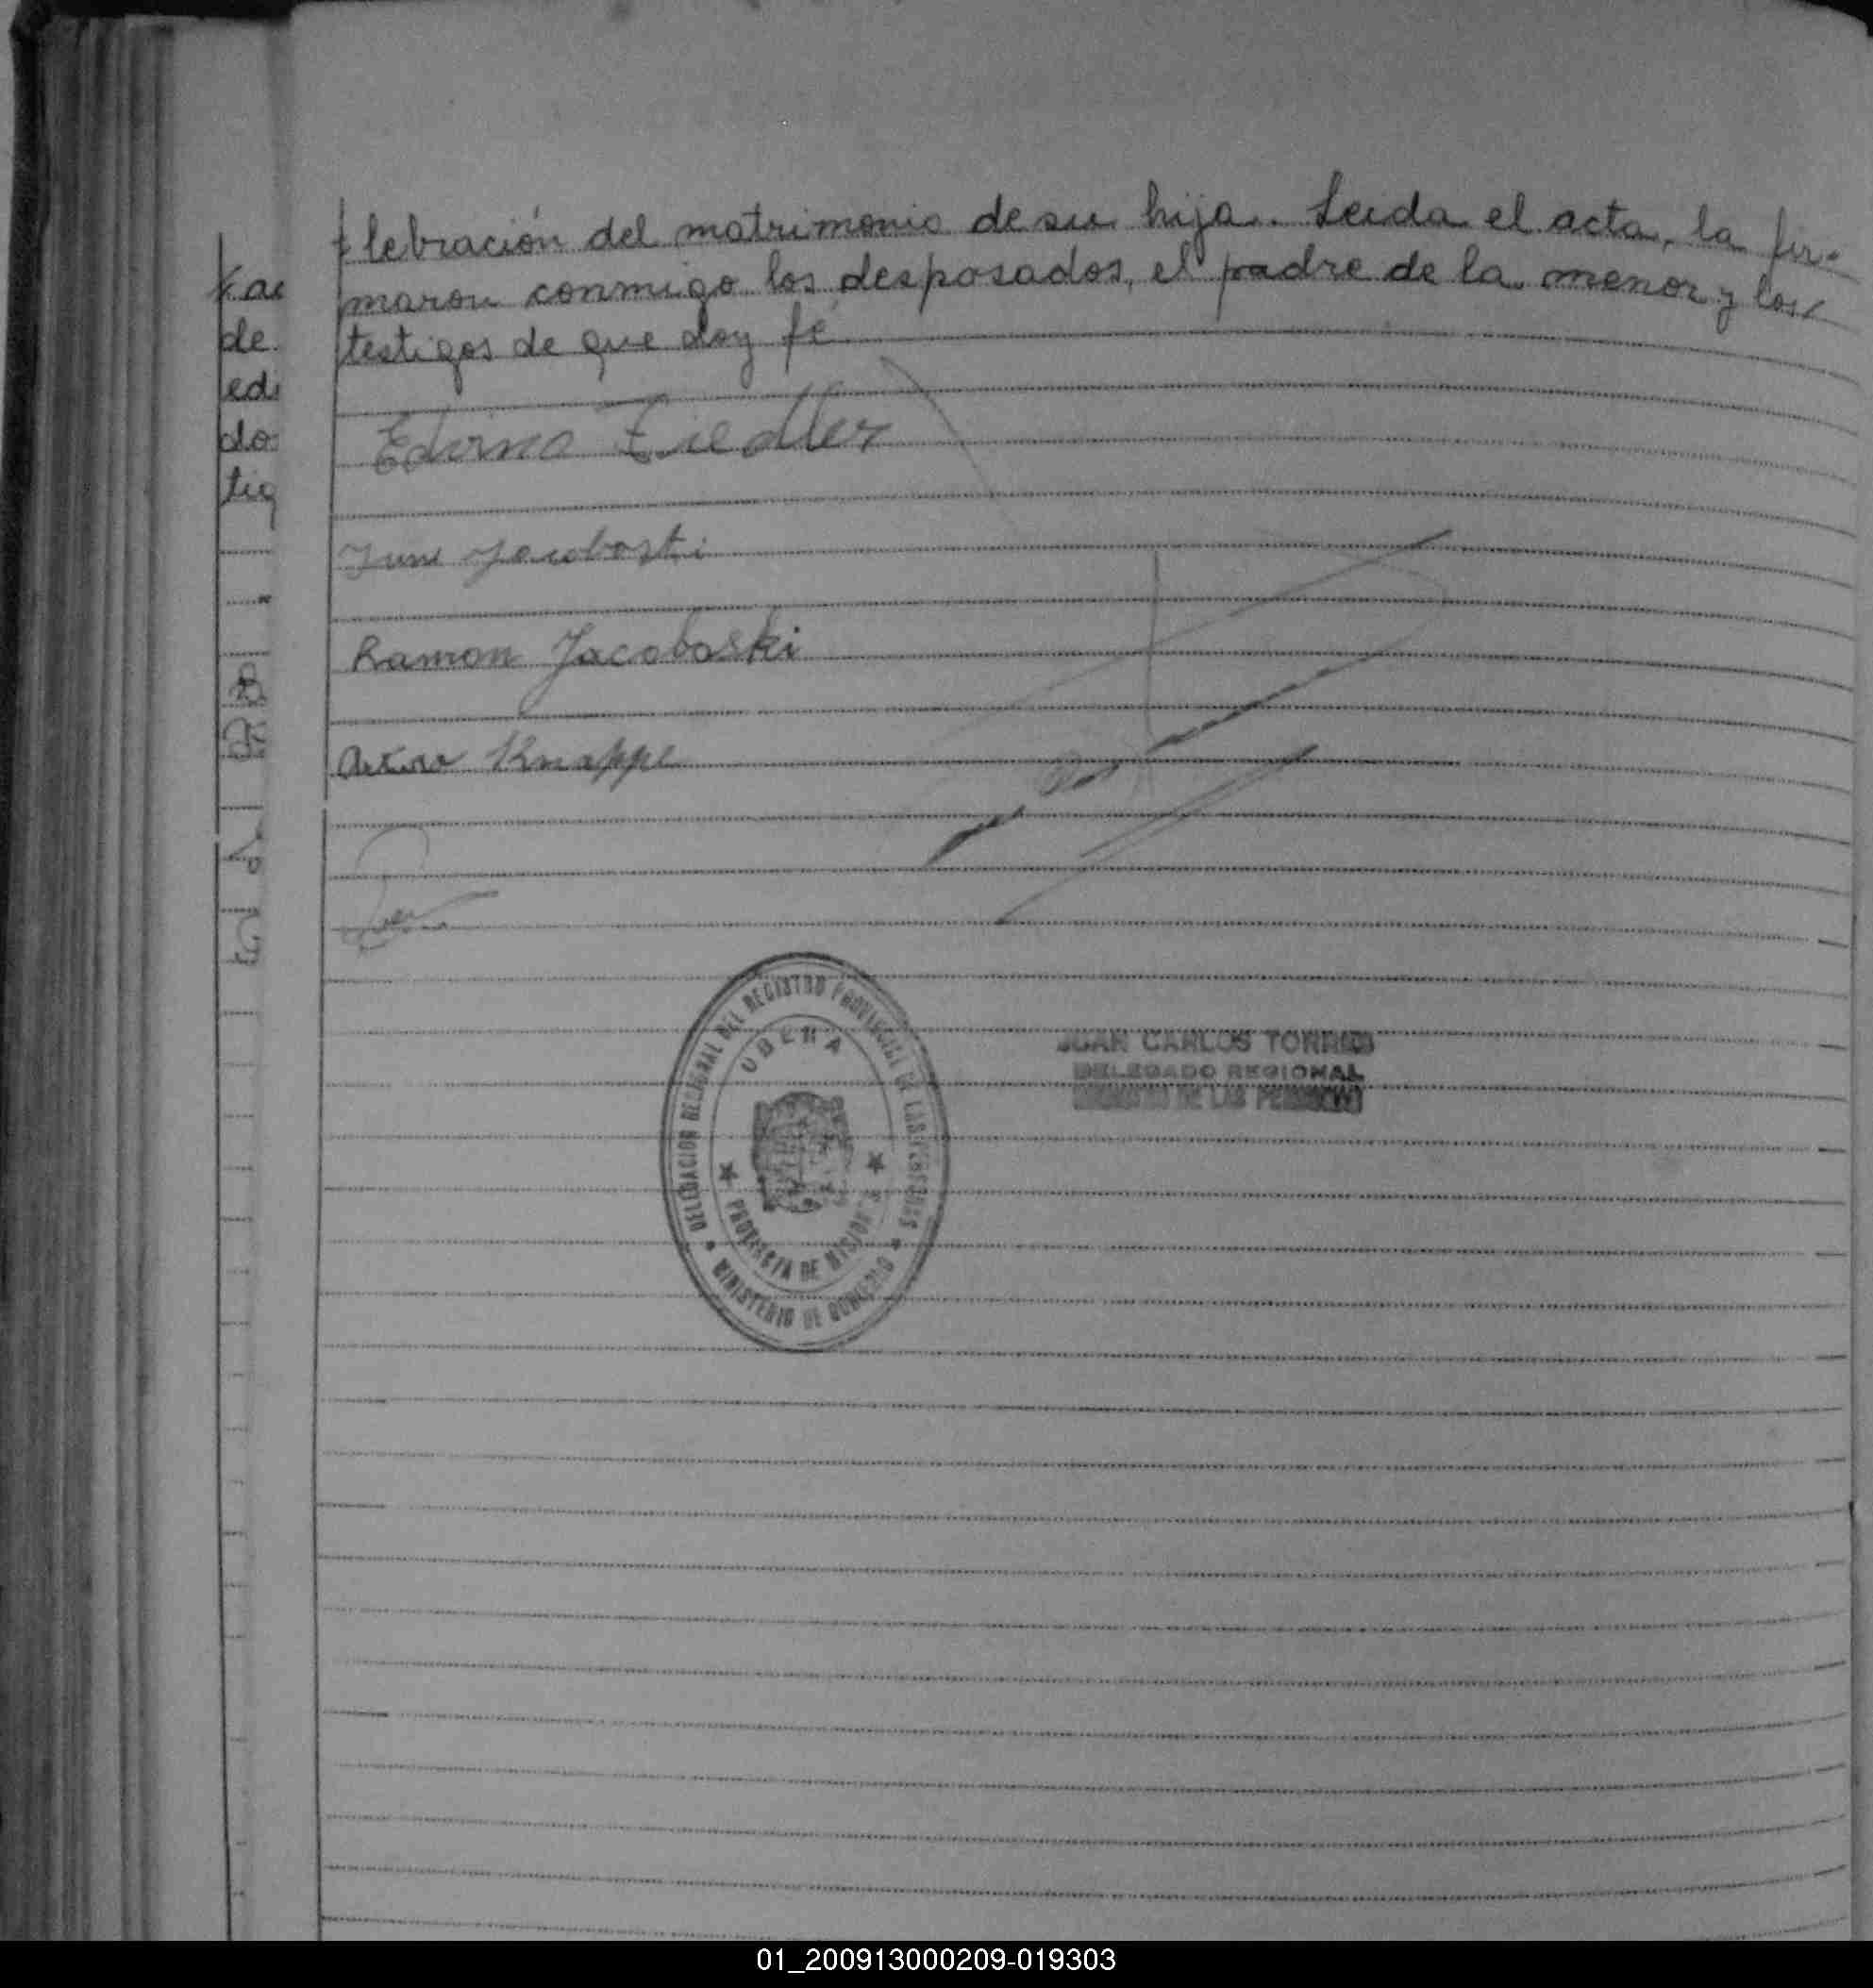 lebración del matrimonio de su hija. Leida el acta, la fir-
maron conmigo los desposados, el padre de la menor y los
testigos de que doy fé
Ramon Jacoboski
Arturo Knappe
ac
de
ed
do
tig
DELEGACION REGIONAL DEL REGISTRO PROVINCIAL DE LAS PERSONAS
OBERA
PROVINCIA DE MISIONES
MINISTERIO DE GOBIERNO
JUAN CARLOS TORRES
DELEGADO REGIONAL
DE LAS
01_200913000209-019303